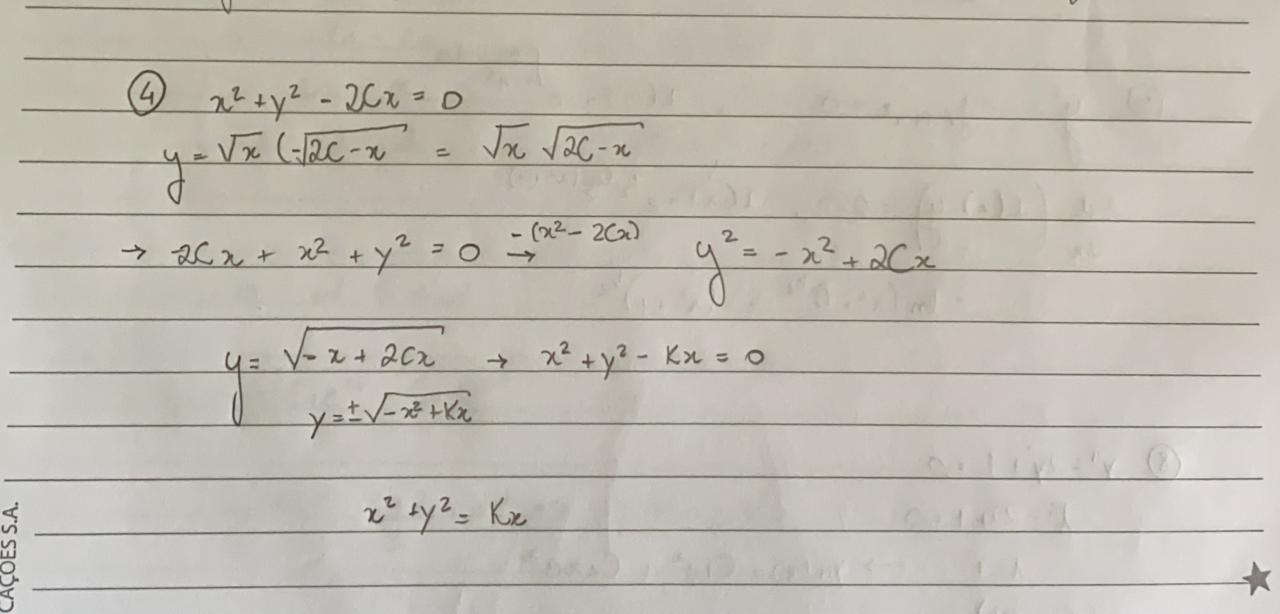 ④ x² + y² - 2Cx = 0
y = √x (-√2C - x = √x √2C - x
→ 2Cx + x² + y² = 0 -(x² - 2Cx) → y² = - x² + 2Cx
y = √-x + 2Cx → x² + y² - Kx = 0
y = ± √-x² + Kx
x² + y² = Kx
CAÇÕES S.A.